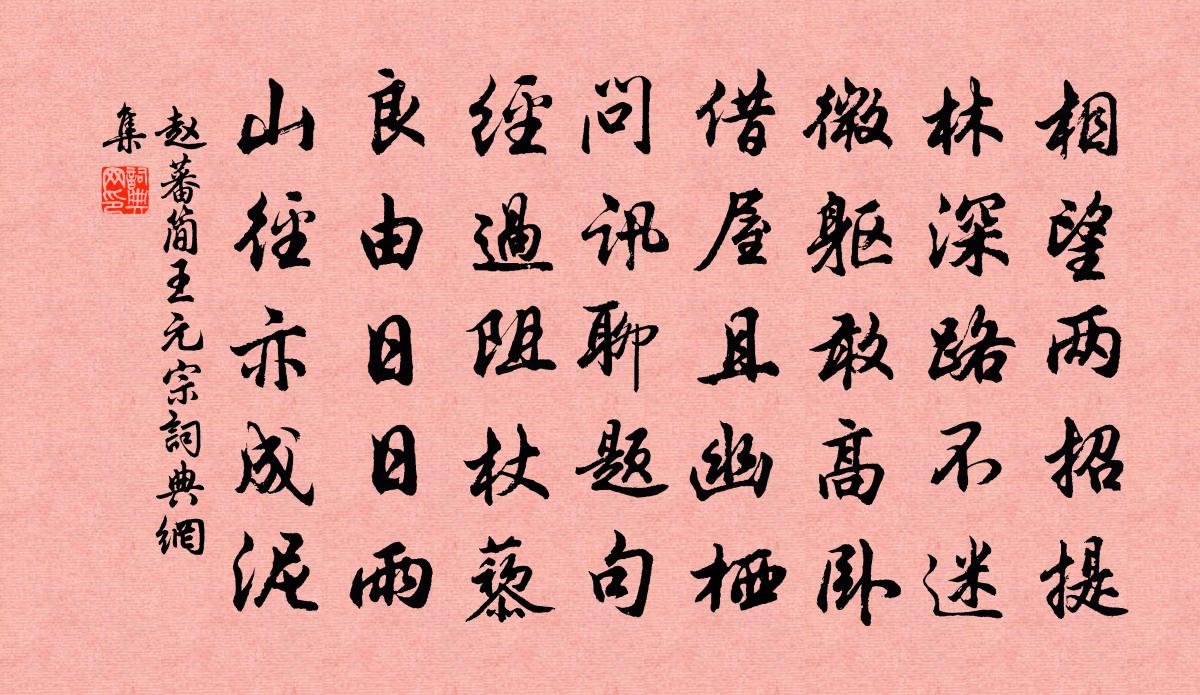 相望两招提
林深路不迷
微躯敢高卧
借屋且幽栖
问讯聊题句
經過阻杖藜
良由日日雨
山径亦成泥
赵蕃简王元宗詞典網
集
詞典网印